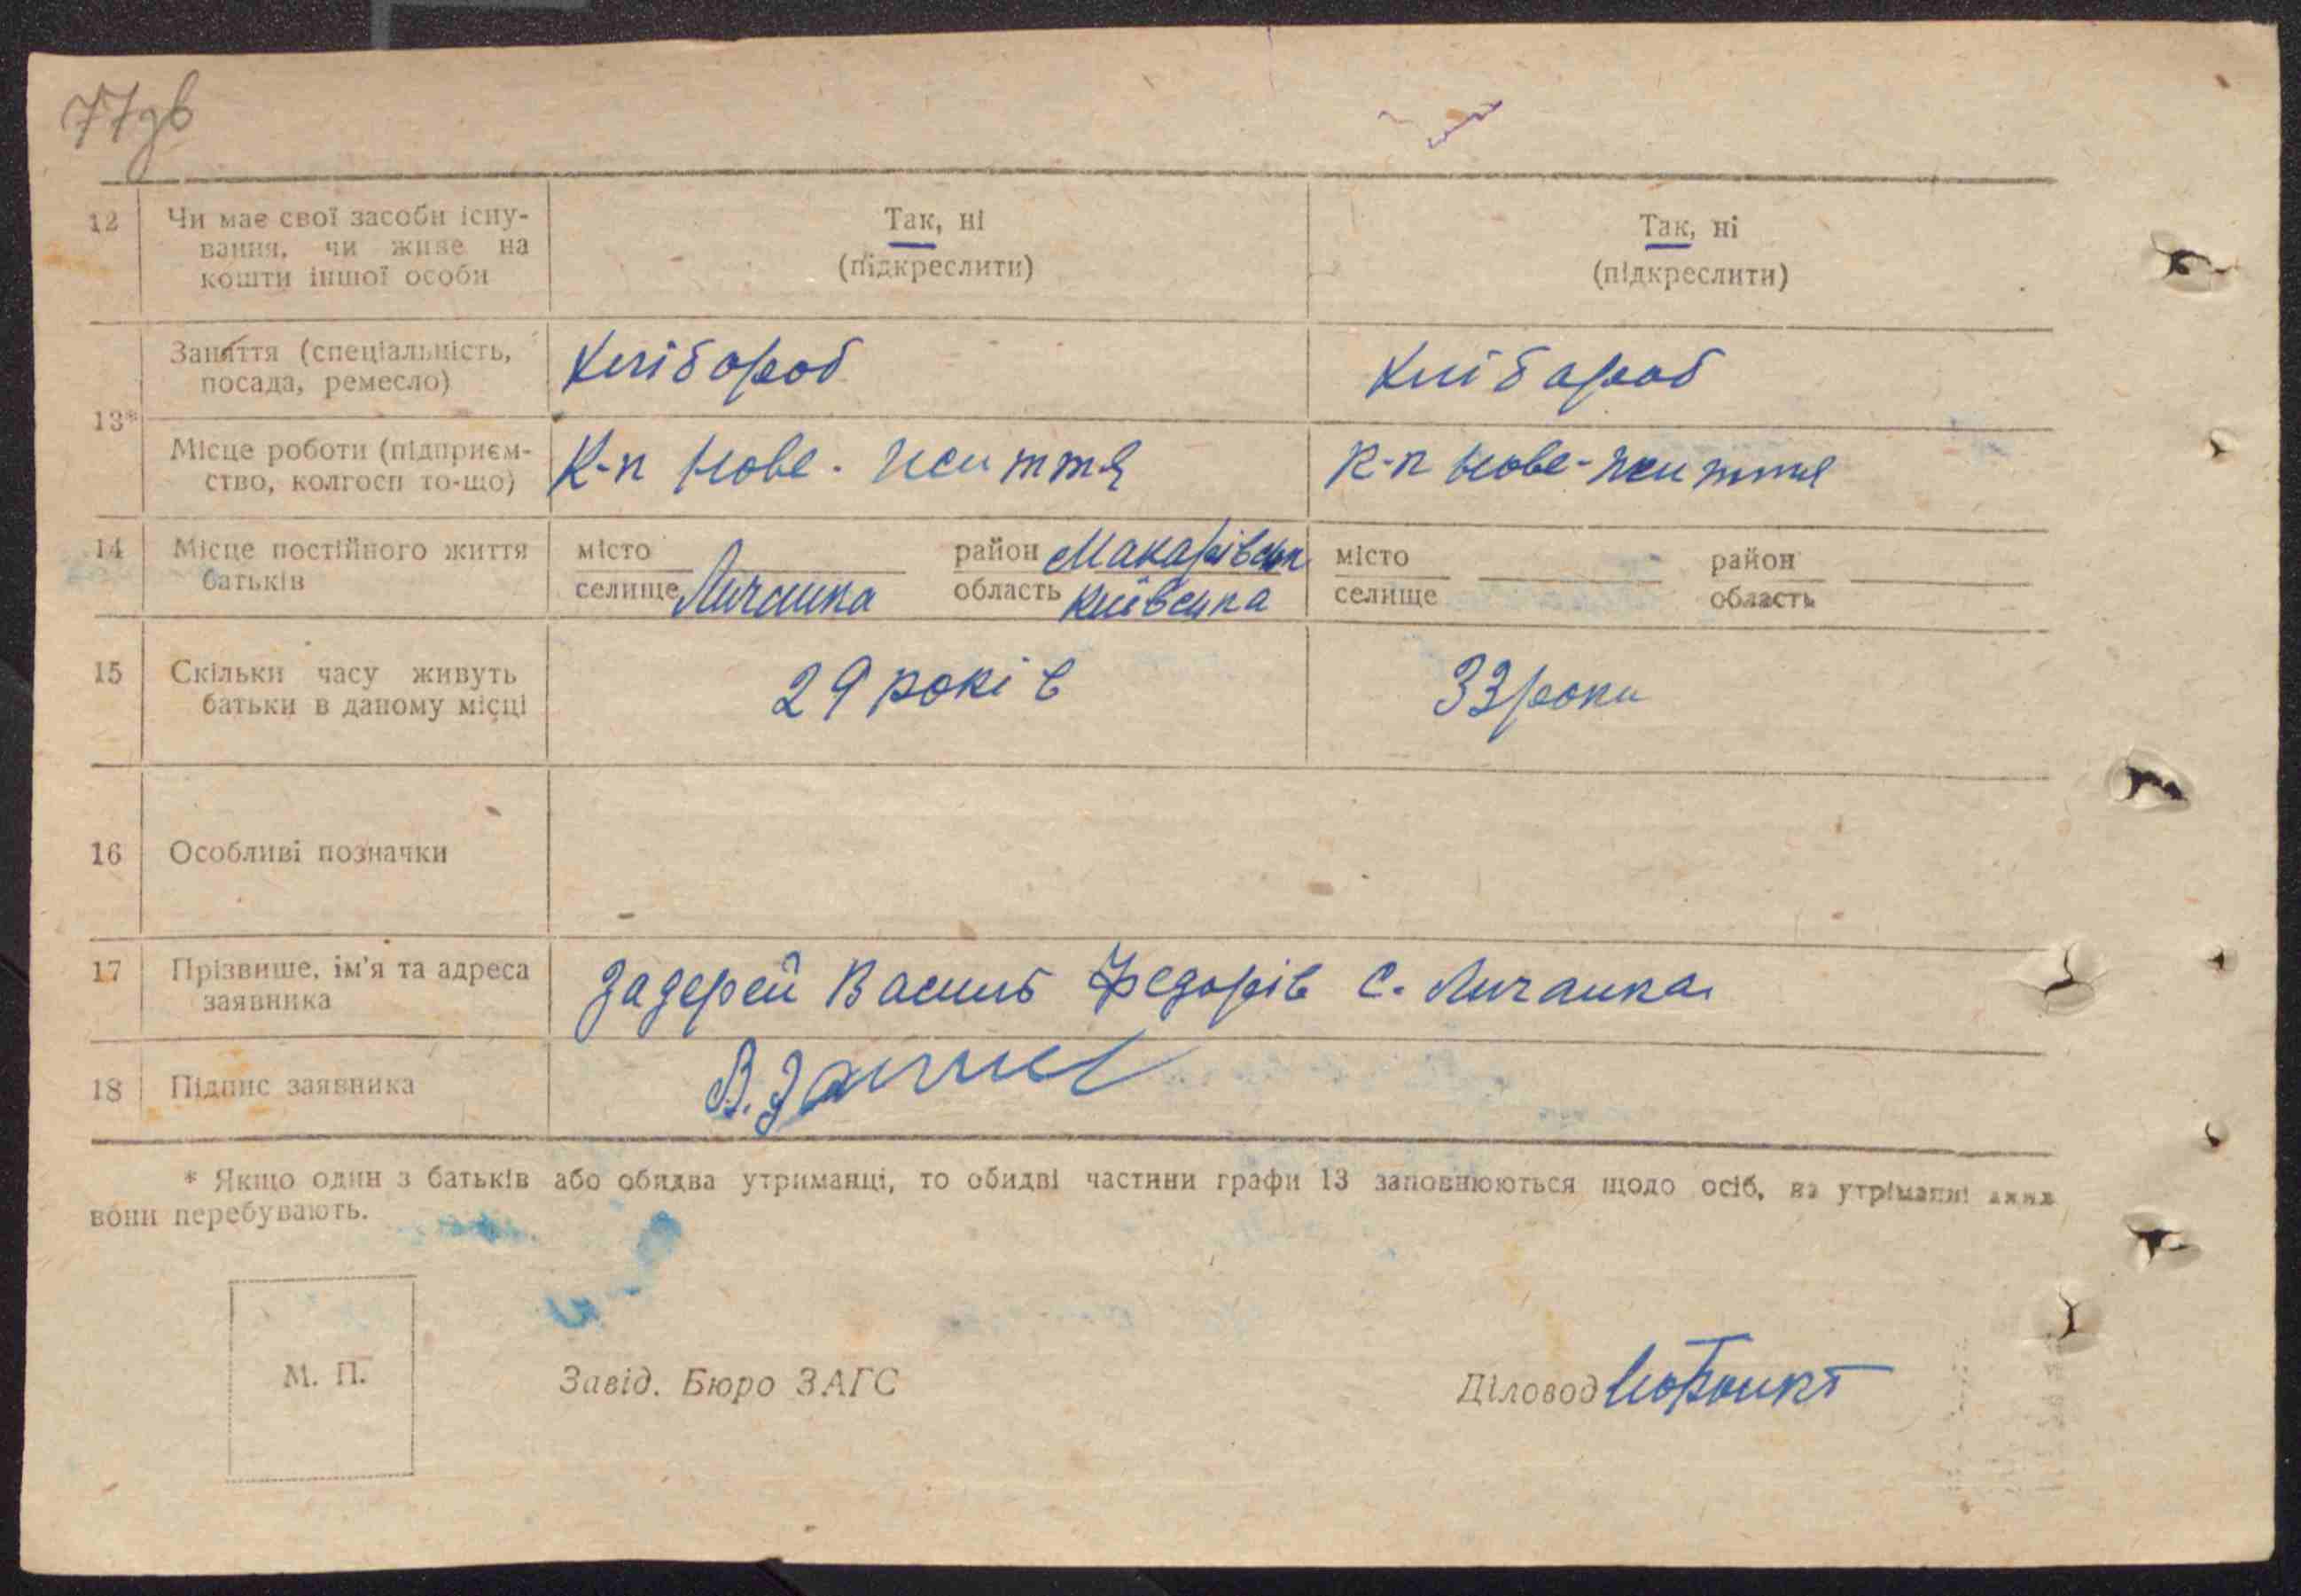 77зв
12 Чи має свої засоби існу-
вання, чи живе на
кошти іншої особи
Так, ні
(підкреслити)
Так, ні
(підкреслити)
13*
Заняття (спеціальність,
посада, ремесло)
Хлібороб
Хлібороб
Місце роботи (підприєм-
ство, колгосп то-що)
К-п Нове-життя
К-п Нове-життя
14 Місце постійного життя
батьків
місто
селище Личанка
район Макарівськ
область Київська
місто
селище
район
область
15 Скільки часу живуть
батьки в даному місці
29 років
33 роки
16 Особливі позначки
17 Прізвише, ім'я та адреса
заявника
Задерей Василь Федорів с. Личанка
18 Підпис заявника
* Якщо один з батьків або обидва утриманці, то обидві частини графи 13 заповнюються щодо осіб, на утріманні яких
вони перебувають.
М. П.
Завід. Бюро ЗАГС
Діловод